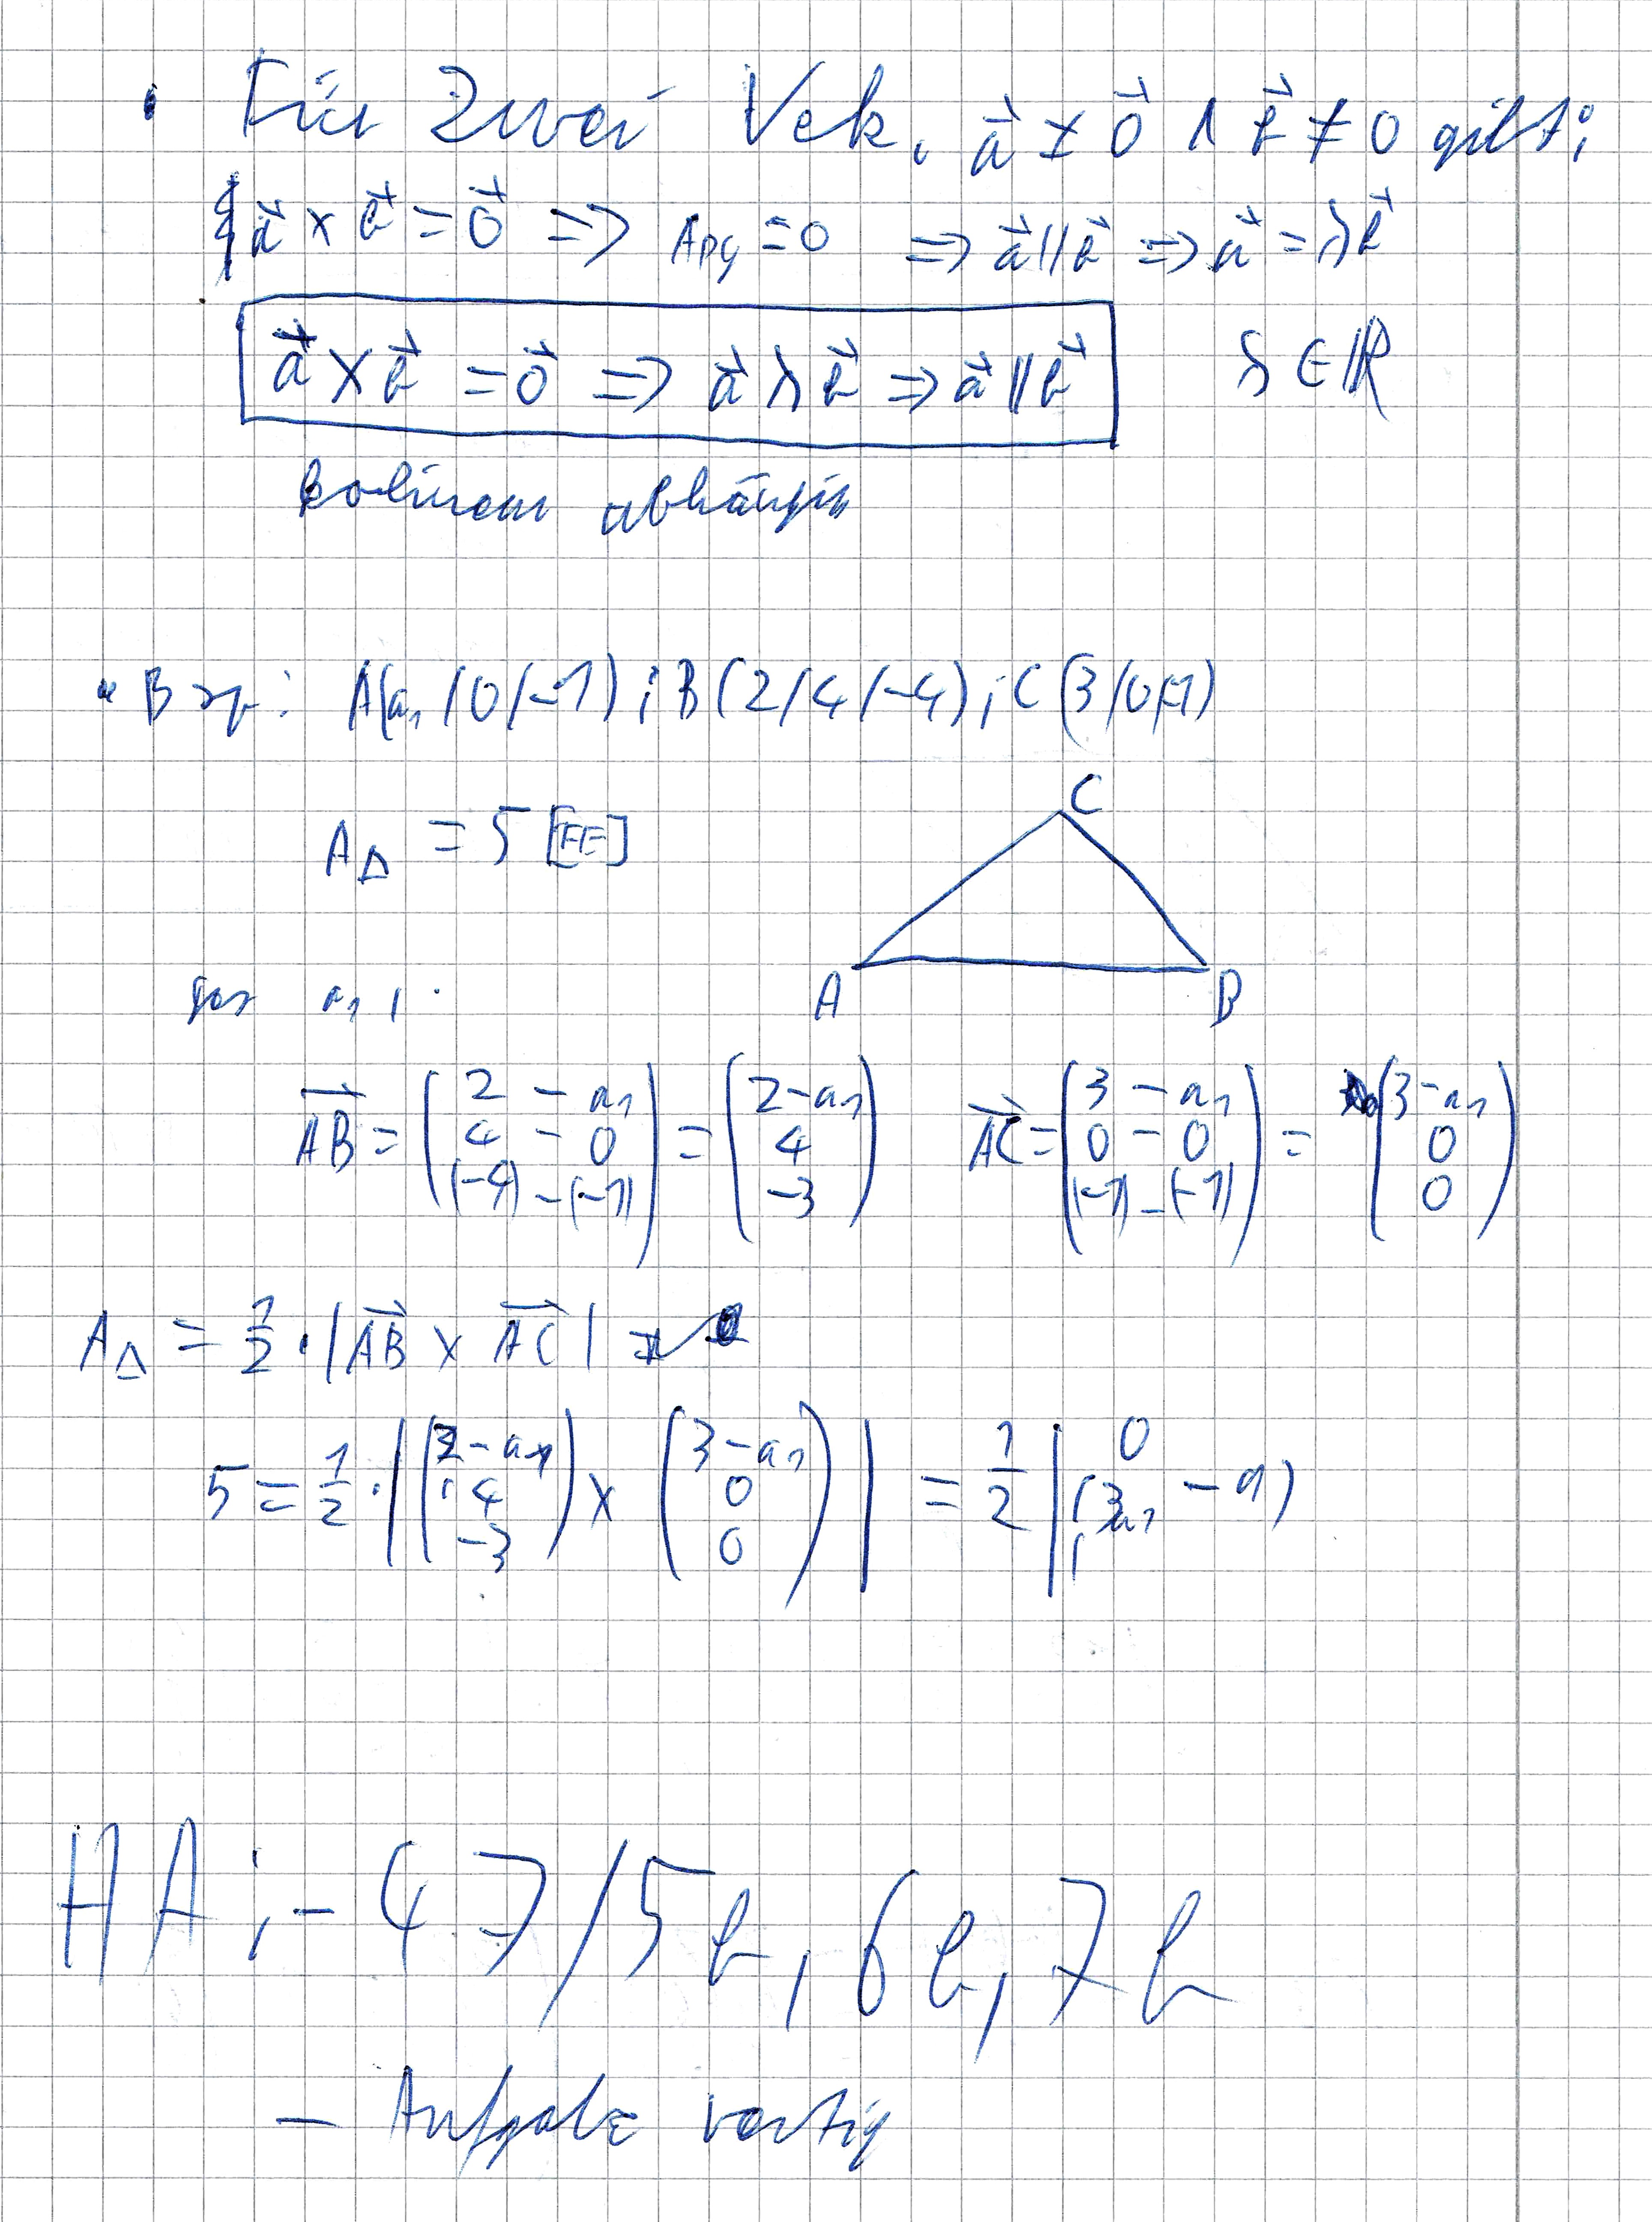 • Für zwei Vek. a⃗ ≠ 0⃗ ∧ b⃗ ≠ 0 gilt;
a⃗ × b⃗ = 0⃗ => A_Pg = 0 => a⃗ || b⃗ => a⃗ = λb⃗
a⃗ × b⃗ = 0⃗ => a⃗ λ b⃗ => a⃗ || b⃗ λ ∈ ℝ
kolinear abhängig
• Bsp: A(a₁/0/-1); B(2/4/-4); C(3/0/-1)
C
A_Δ = 5 [FE]
A B
ges a₁
AB⃗ = (2 - a₁ / 4 - 0 / (-4) - (-1)) = (2-a₁ / 4 / -3) AC⃗ = (3 - a₁ / 0 - 0 / (-1) - (-1)) = (3-a₁ / 0 / 0)
A_Δ = 1/2 · |AB⃗ × AC⃗|
5 = 1/2 · |(2-a₁ / 4 / -3) × (3-a₁ / 0 / 0)| = 1/2 |0 / (3a₁ - 9)
HA: - 47/5b, 6b, 7b
- Aufgabe vertig